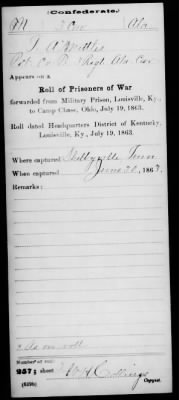 (Confederate.)
M 3 Cav. Ala.
T. A.
Pvt. Co. Regt. Ala. Cav.
Appears on a
Roll of Prisoners of War
forwarded from Military Prison, Louisville, Ky.,
to Camp Chase, Ohio, July 19, 1863.
Roll dated Headquarters District of Kentucky,
Louisville, Ky., July 19, 1863.
Where captured Shelbyville Tenn
When captured June, 1863.
Remarks:
on roll
Number of roll:
257; sheet
Copyist.